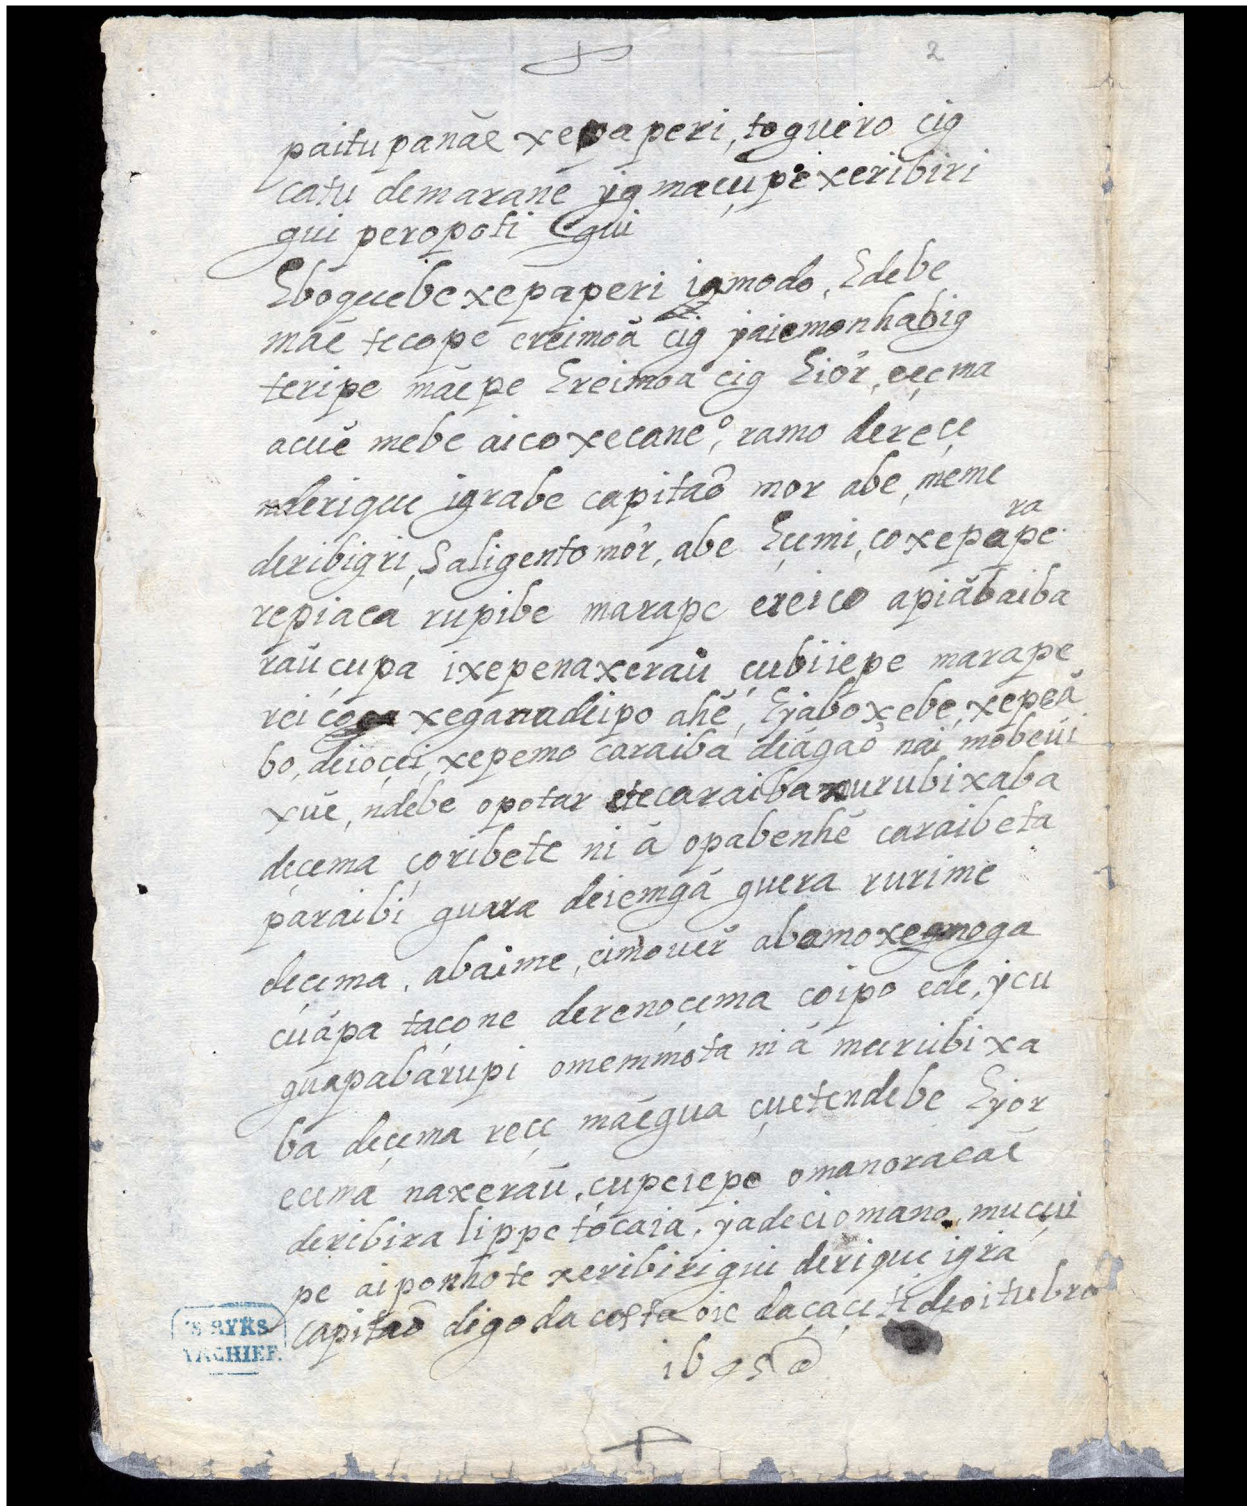 2
paitupanãe xepaperi, toguero cig
catu demarane yg macupe xeribiri
gui peropoti Egui
Ebogecebe xepaperi igmodo, Edebe
mãe tecope ereimoã cig yaiemonhabig
teripe mãepe Ereimoa cig Eior, eecma
acuẽ mebe aico xecane°, ramo dereçe
nderique igrabe capitaõ mor abe, meme
deribigri, Saligento mor, abe Eçemi, co xepape
ra
repiaca rupibe marape ereico apiãbaiba
raũ cupa ixepenaxeraũ çubiiepe marape
rei xeganadeipo ahẽ, Eyabo xebe, xepeã
bo, deioçei, xepemo caraiba diagaõ nai mobeũi
xuẽ, ndebe opotar etecaraiba murubixaba
deçema çoribete ni ã opabenhẽ caraibeta
paraibi guara deiemgã guera rurime
deçema, abaime, cimouer abamo xegmoga
cuãpa taçone derenoçema coipo ede, ycu
guapabarupi omemmota ni ã murubixa
ba deçema reçe mãegua çuetendebe Eyor
ecema naxeraũ, çupeiepe omanoracaẽ
deribira lippe tocaia, yadecio mano, mucui
pe aiponhote xeribirigui derique igra
capitaõ digo da costa oie daçaçeti deoitubro
'S RYKS
ARCHIEF.